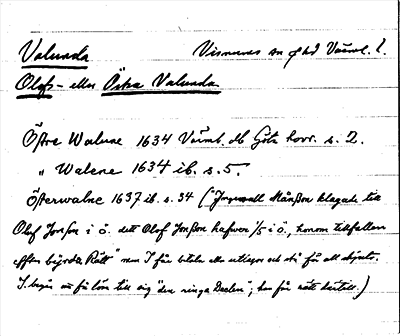 Valunda Visnums sn o hd Värml. l.
Olofs- eller Östra Valunda.
Östre Walune 1634 Värml. db Göta hovr. s. 2.
" Walene 1634 ib. s. 5.
Österwalne 1637 ib. s. 34 ("Ingewall Månßon klagade till
Olof Jonßon i ö. dett Olof Jonßon hafwer 1/5 i ö., honom tillfallen
efter bijrde Rätt" men I får betala eller utlöses och stå för all
I. begär få lön till sig "den ringa Deelen"; han får rätt härtill.)